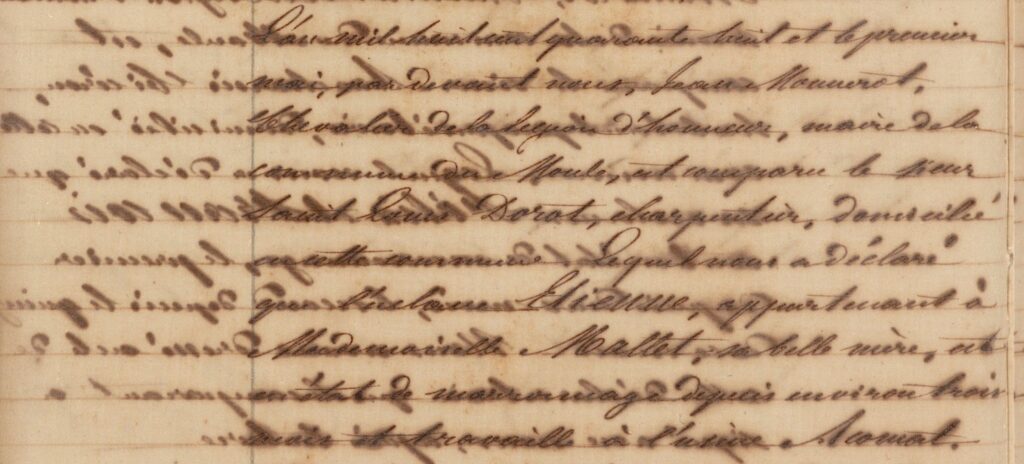 L'an mil huit cent quarante huit et le premier
mai, par devant nous, Jean Mouneret,
Chevalier de la Légion d'honneur, maire de la
commune du Moule, est comparu le sieur
Saint Louis Dorat, charpentier, domicilié
en cette commune Lequel nous a déclaré
que l'esclave Etienne, appartenant à
Mademoiselle Mallet, sa belle mère, est
en état de marronnage depuis environ trois
mois et travaille à l'usine Acomat.